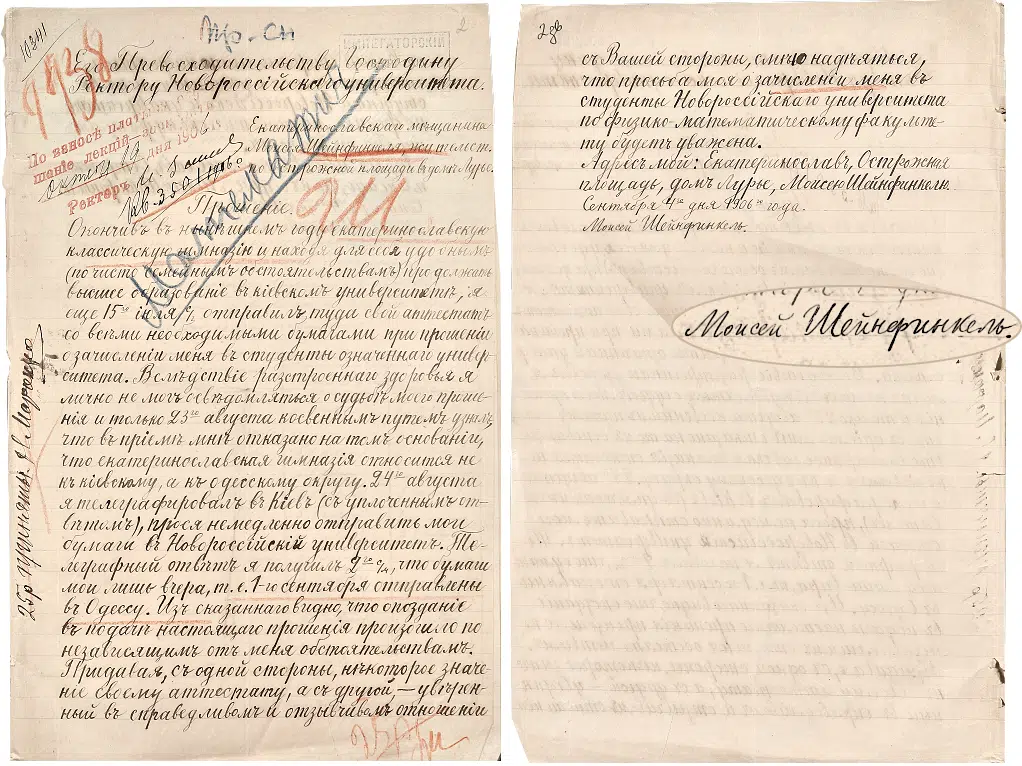 10341
пр-сн
2
ИМПЕРАТОРСКІЙ
938
Его Превосходительству Господину
Ректору Новороссійскаго университета.
По взносѣ платы
шаніе лекцій
октября 19 дня 1906
Ректоръ
кв. 3501
Екатеринославскаго мѣщанина
Моисея Шейнфинкеля, жительст.
по Острожной площади въ д. Лурье.
Прошеніе.
911
Математич.
Окончивъ въ нынѣшнемъ году екатеринославскую
классическую гимназію и находя для себя удобнымъ
(по чисто семейнымъ обстоятельствамъ) продолжать
высшее образованіе въ кіевскомъ университетѣ, я
еще 15го іюля с/г отправилъ туда свой аттестатъ
со всѣми необходимыми бумагами при прошеніи
о зачисленіи меня въ студенты означеннаго универ-
ситета. Вслѣдствіе разстроеннаго здоровья я
лично не могъ освѣдомляться о судьбѣ моего проше-
нія и только 23го августа косвеннымъ путемъ узналъ,
что въ пріемѣ мнѣ отказано на томъ основаніи,
что екатеринославская гимназія относится не
къ кіевскому, а къ одесскому округу. 24го августа
я телеграфировалъ въ Кіевъ (съ уплоченнымъ от-
вѣтомъ), прося немедленно отправить мои
бумаги въ Новороссійскій университетъ. Те-
леграфный отвѣтъ я получилъ 2го с/м, что бумаги
мои лишь вчера, т. е. 1-го сентября отправлены
въ Одессу. Изъ сказаннаго видно, что опозданіе
въ подачѣ настоящаго прошенія произошло по
независящимъ отъ меня обстоятельствамъ.
Придавая, съ одной стороны, нѣкоторое значе-
ніе своему аттестату, а съ другой, — увѣрен-
ный въ справедливомъ и отзывчивомъ отношеніи
25р
2об
съ Вашей стороны, смѣю надѣяться,
что просьба моя о зачисленіи меня въ
студенты Новороссійскаго университета
по физико-математическому факульте-
ту будетъ уважена.
Адресъ мой: Екатеринославъ, Острожная
площадь, домъ Лурье, Моисею Шейнфинкелю.
Сентября 4го дня 1906го года.
Моисей Шейнфинкель.
Моисей Шейнфинкель.